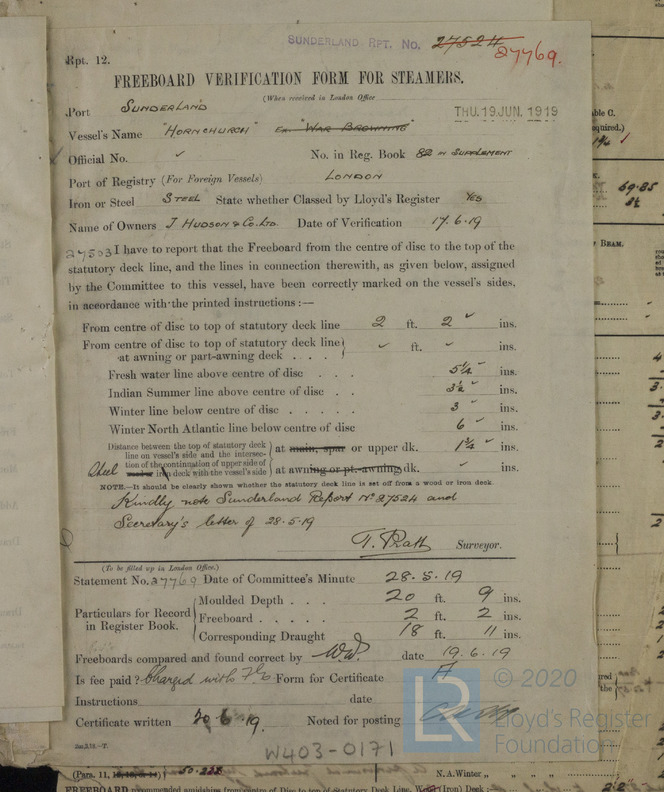 SUNDERLAND RPT. No. 27524
27769.
Rpt. 12.
FREEBOARD VERIFICATION FORM FOR STEAMERS.
(When received in London Office
THU. 19 JUN. 1919
Port SUNDERLAND
Vessel's Name "HORNCHURCH" EX. "WAR BROWNING"
Official No. ✓ No. in Reg. Book 82 IN SUPPLEMENT
Port of Registry (For Foreign Vessels) LONDON
Iron or Steel STEEL State whether Classed by Lloyd's Register YES
Name of Owners J HUDSON & CO. LTD. Date of Verification 17.6.19
27503 I have to report that the Freeboard from the centre of disc to the top of the
statutory deck line, and the lines in connection therewith, as given below, assigned
by the Committee to this vessel, have been correctly marked on the vessel's sides,
in accordance with the printed instructions :—
From centre of disc to top of statutory deck line 2 ft. 2 ✓ ins.
From centre of disc to top of statutory deck line
at awning or part-awning deck . . . ✓ ft. ✓ ins.
Fresh water line above centre of disc . . . 5¼ ✓ ins.
Indian Summer line above centre of disc . . 3½ ✓ ins.
Winter line below centre of disc . . . . . 3 ✓ ins.
Winter North Atlantic line below centre of disc 6 ✓ ins.
Distance between the top of statutory deck
line on vessel's side and the intersec-
tion of the continuation of upper side of
Steel iron deck with the vessel's side
at main, spar or upper dk. 1¾ ✓ ins.
at awning or pt.-awning dk. ✓ ins.
NOTE.—It should be clearly shown whether the statutory deck line is set off from a wood or iron deck.
Kindly note Sunderland Report No 27524 and
Secretary's letter of 28.5.19
T. Pratt Surveyor.
(To be filled up in London Office.)
Statement No. 27769 Date of Committee's Minute 28.5.19
Particulars for Record
in Register Book.
Moulded Depth . . . 20 ft. 9 ins.
Freeboard . . . . . 2 ft. 2 ins.
Corresponding Draught 18 ft. 11 ins.
Freeboards compared and found correct by date 19.6.19
Is fee paid? Charged with Form for Certificate A
Instructions date
Certificate written 20.6.19. Noted for posting
W403-0171
© 2020
LR Lloyd's Register
Foundation
(Pars. 11, N.A. Winter